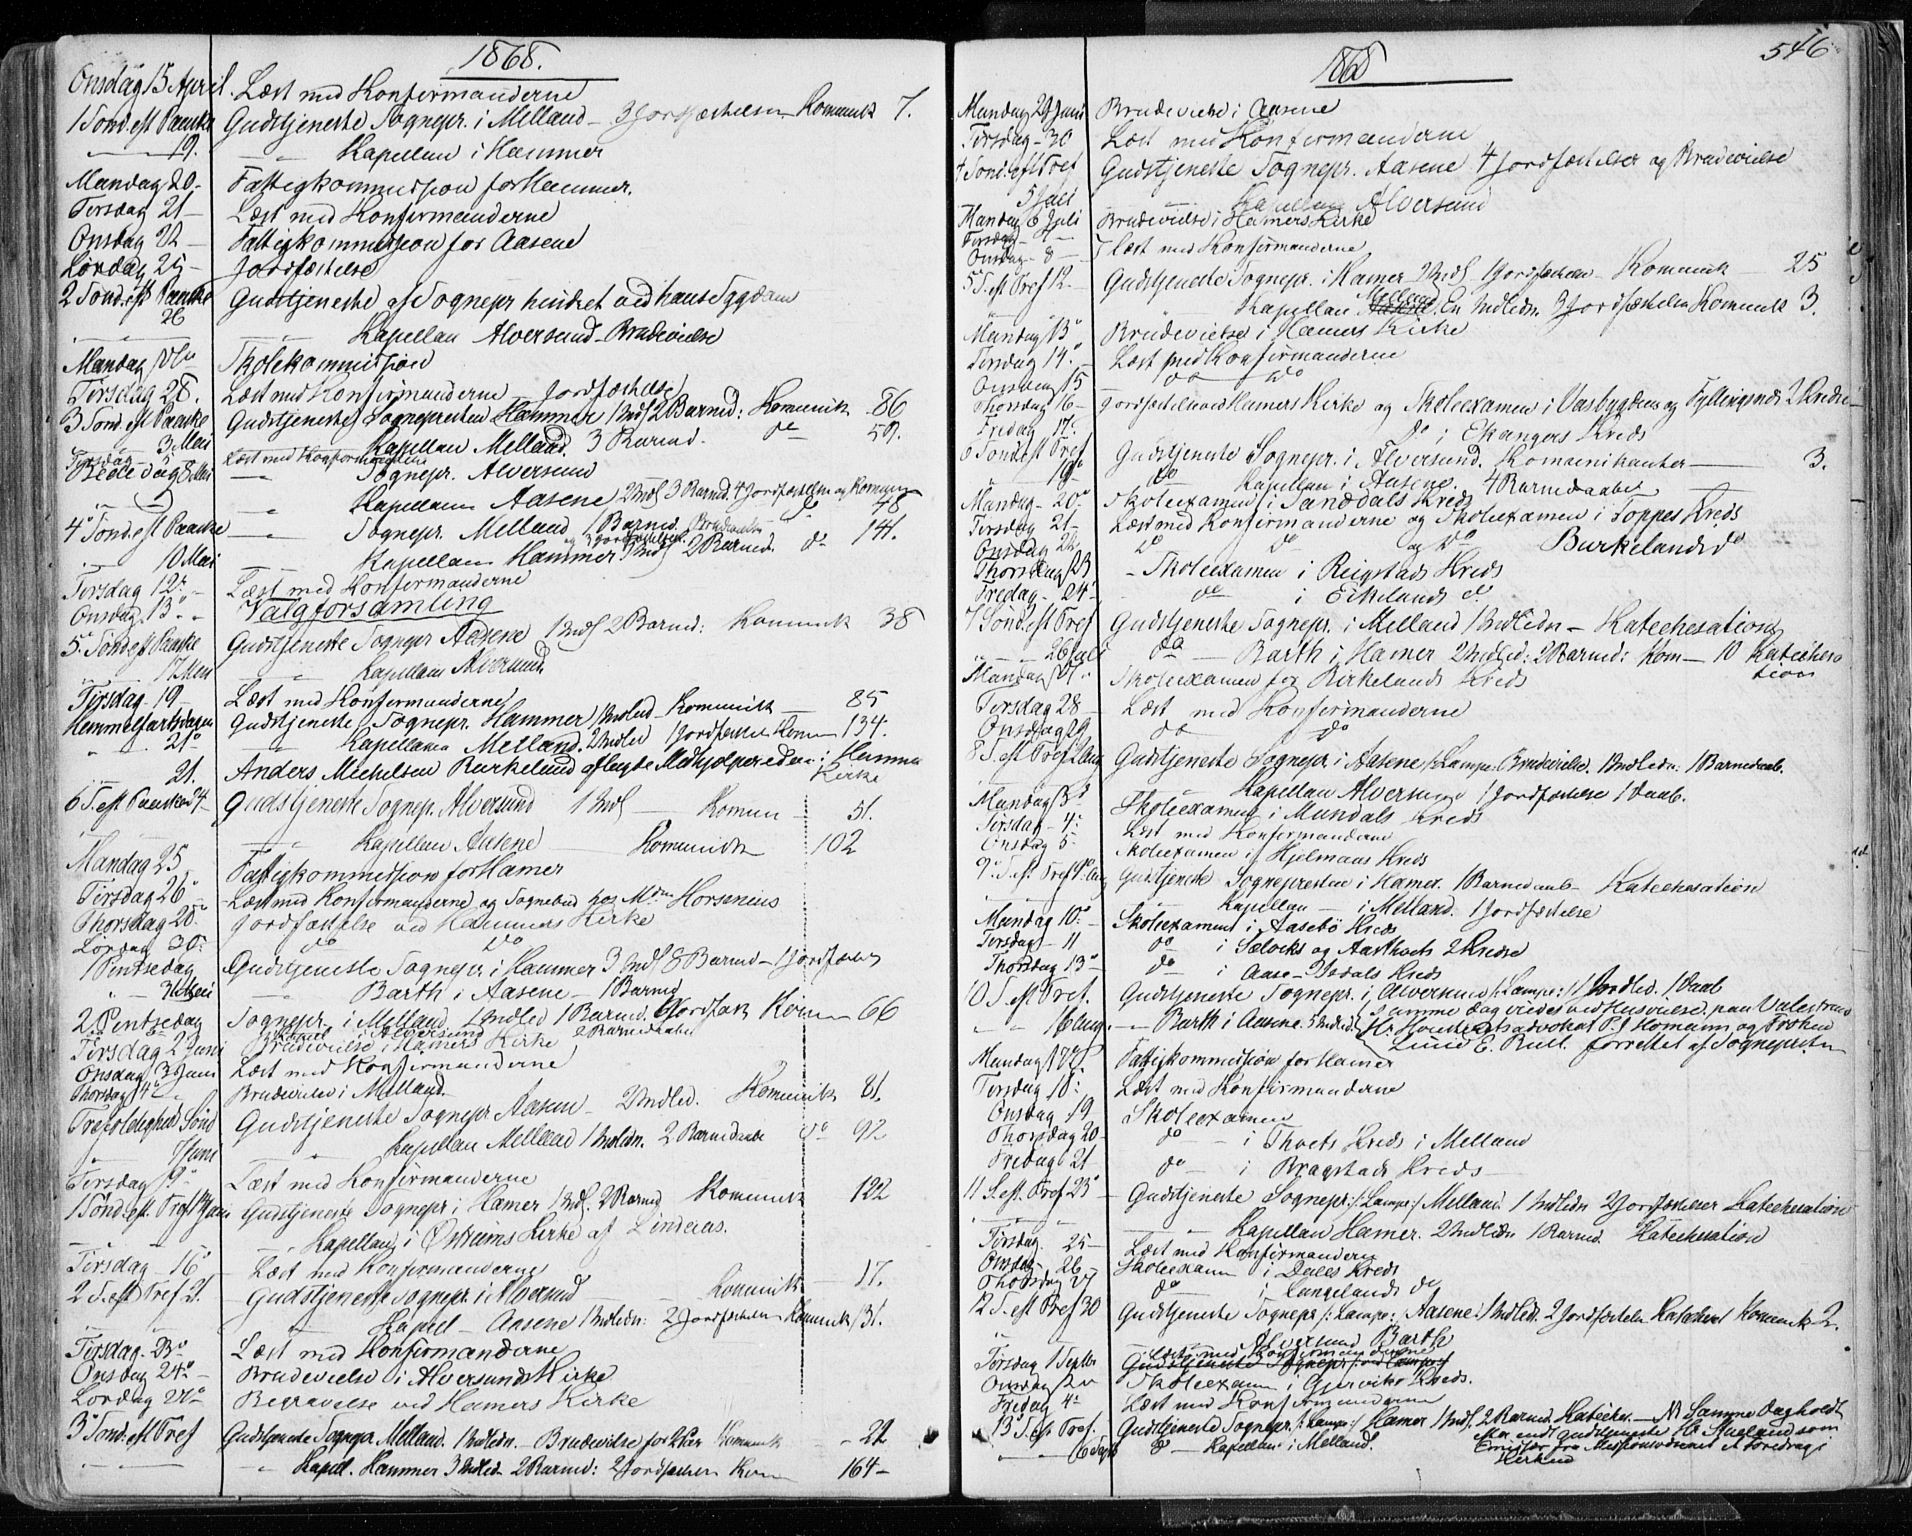 1868.
Onsdag 15 April. Læst med Konfirmanderne
1 Sønd. eft Paaske Gudstjeneste Sognepr. i Melland - 3 Jordfæstelser Komunik 7.
19. Kapellan i Hammer
Mandag 20 - Fattigkommission for Hammer.
Tirsdag 21 - Læst med Konfirmanderne
Onsdag 22 - Fattigkommission for Aasene
Lørdag 25 - Jordfæstelse
2 Sønd. eft Paaske Gudstjeneste af Sognepr hindret ved hans Sygdom
26 Kapellan Alversund - Brudevielse
Mandag Skolekommission
Tirsdag 28. Læst med Konfirmanderne Jordfæstelse
3 Sønd. eft Paaske Gudstjeneste Sognepresten Hammer 1 Indl 2 Barned: Komunik 86
3 Mai Kapellan Melland. 3 Barned. do 59.
Tirsdag 5 Læst med Konfirmanderne
Bededag 8 Mai - Sognepr. Alversund
Kapellan Aasene 2 Indl 3 Barned. 4 Jordfæstelser og Komun 48
4 Sønd. eft Paaske - Sognepr. Melland 1 Barned. do 141.
10 Mai Kapellan Hammer 3 Indl 2 Barned. do
Tirsdag 12 - Læst med Konfirmanderne
Onsdag 13 - Valgforsamling
5 Sønd. eft Paaske Gudstjeneste Sognepr Aasene 1 Indl 2 Barned: Komunik 38
17 Mai Kapellan Alversund
Tirsdag 19 Læst med Konfirmanderne
Hemmelfartsdagen Gudstjeneste Sognepr. Hammer 1 Indled - Komunik 85
21 Kapellanen Melland. 2 Indled 1 Jordfæstelse Kom 134.
21. Anders Michelsen Burkeland aflagte Medhjælpereden i Hammer Kirke
6 S. eft Paaske 24 - Gudstjeneste Sognepr. Alversund 1 Indl - Komun - 51.
Kapellan Aasene - Komunik 102
Mandag 25 Fattigkommission for Hamer
Tirsdag 26 Læst med Konfirmanderne og Sognebud hos Horsenius
Thorsdag 28 Jordfæstelse ved Hammers Kirke
Lørdag 30 do do
1 Pintsedag Gudstjeneste Sognepr i Hammer 3 Indl 8 Barned - 1 Jordfæstelse
31 Mai Barth i Aasene - 1 Barned
2. Pintsedag Sognepr. i Melland 1 Indled 1 Barned. Komun 66
Tirsdag 2 Juni Brudevielse i Hamers Kirke
Onsdag 3 Juni Læst med Konfirmanderne
Thorsdag 4 Brudevielse i Melland
Trefoldighed Sønd Gudstjeneste Sognepr Aasene - 2 Indled. Komunik 81.
7 Juni Kapellan Melland 1 Indledn. 2 Barnedaabe do 92
Tirsdag 9 Læst med Konfirmanderne
1 Sønd. eft. Tref 14 Juni Gudstjeneste Sognepr i Hamer 1 Indl. 2 Barned Komunik 122
Kapellan i Østreims Kirke af Linderaas.
Tirsdag - 16 Læst med Konfirmanderne
2 S. eft Tref 21. Gudstjeneste Sognepr i Alversund - Komunik - 17.
Kapel - Aasene 1 Indledn: 2 Jordfæstelser Komunik 131.
Tirsdag - 23 Læst med Konfirmanderne
Onsdag 24 - Brudevielse i Alversunds Kirke
Lørdag 27 Begravelse ved Hamers Kirke
3 Sønd. eft Tref Gudstjeneste Sognepr Melland. 1 Indledn. - Brudevielse for 2 Par Komunik - 22
Kapel. Hammer 3 Indledn 2 Barned: 2 Jordfæstelser Kom - 164 -
546
1868
Mandag 29 Juni Brudevielse i Aasene
Tirsdag - 30 Læst med Konfirmanderne
4 Sønd. eft Tref Gudstjeneste Sognepr. Aasene 4 Jordfæstelser og Brudevielse
5 Juli Kapellan Alversund
Mandag 6 Juli Brudevielse i Hamers Kirke
Tirsdag 7 -
Onsdag - 8 - Læst med Konfirmanderne
5 S. eft Tref 12. Gudstjeneste Sognepr. i Hamer 2 Indl 1 Jordfæstelse - Komunik - 25
Kapellan Melland En Indledn 3 Jordfæstelser Komunik 3.
Mandag 13 Brudevielse i Hamers Kirke
Tirsdag 14. Læst med Konfirmanderne
Onsdag 15 do do
Thorsdag 16 - Jordfæstelse ved Hamers Kirke og Skoleexamen i Vasbygdens og Fyllingsnes 2 Kredse
Fredag 17. do i Ekangers Kreds
6 Sønd. eft Tref Gudstjeneste Sognepr. i Alversund. Komunikanter - 3.
19 do Kapellan i Aasene. 4 Barnedaabe
Mandag - 20 Skoleexamen i Sandals Kreds
Tirsdag 21 - Læst med Konfirmanderne og Skoleexamen i Soppes Kreds
Onsdag 22 do do og do Burkelands do
Thorsdag 23 - Skoleexamen i Reigstads Kreds
Fredag - 24 - do i Eikelands do
7 Sønd. eft Tref Gudstjeneste Sognepr. i Melland 1 Indledn - Katechesation
26 Juli do - Barth i Hamer 2 Indled: 2 Barned: Kom - 10 Katechesation
Mandag 27 Skoleexamen for Birkelands Kreds
Tirsdag 28 - Læst med Konfirmanderne
Onsdag 29 do do
8 S. eft Tref 2 Aug Gudstjeneste Sognepr i Aasene /: Lampe: Brudevielse. 1 Indledn: 1 Barnedaab.
Kapellan Alversund 1 Jordfæstelse 1 Daab.
Mandag 3 Skoleexamen i Mundals Kreds
Tirsdag - 4 Læst med Konfirmanderne
Onsdag 5 Skoleexamen i Hjelmaas Kreds
9 S. eft Tref 9 Aug Gudstjeneste Sognepresten i Hamer. 1 Barnedaab - Katechesation
Kapellan - i Melland. 1 Jordfæstelse
Mandag 10 Skoleexamen i Aasebø Kreds
Tirsdag - 11 do i Sælviks og Aasthvets 2 Kredse
Thorsdag 13 - do - i Aase - Isdals Kreds
10 S. eft Tref. Gudstjeneste Sognepr. i Alversund /: Lampe: 1 Indled. 1 Daab
16 Aug. - Barth i Aasene. 5 Indled. Samme Dag viedes ved Husvielse paa Valestrand
Advokat P. J Homann og Frøken
E. Bull. forrettet af Sognepresten
Mandag 17 Fattigkommission for Hamer
Tirsdag 18: Læst med Konfirmanderne
Onsdag 19 Skoleexamen
Thorsdag 20 - do - i Thvets Kreds i Melland
Fredag 21 do - i Bragstads Kreds -
11 S. eft. Tref 23 Gudstjeneste Sognepr. /: Lampe :/ Melland. 1 Indledn 2 Jordfæstelser Katechesation
Kapellan Hamer. 2 Indledn 1 Barned. Katechesation
Tirsdag. 25 - Læst med Konfirmanderne
Onsdag - 26 - Skoleexamen i Dales Kreds
Thorsdag 27 do - i Langelands do
12 S. eft Tref 30 Gudstjeneste Sognepr /: Lampe :/ Aasene 1 Indledn. 2 Jordfæstelser Katechesat Komunik 2.
Alversund Barth
Tirsdag 1 Septbr Læst med Konfirmanderne
Gudstjeneste Sognepr
Onsdag 2 Skoleexamen i Gjerviks Kreds.
Fredag 4 Læst med Konfirmanderne
13 S. eft Tref. Gudstjeneste Sognepr. /: Lampe :/ Hamer 1 Indl. 2 Barned. Kateches. - NB Samme Dag holdt
6 Sept do - Kapellan i Melland. efter endt gudstjeneste Hr Aueland som
Emissær fra Missionsvennet et Foredrag i
Kirken